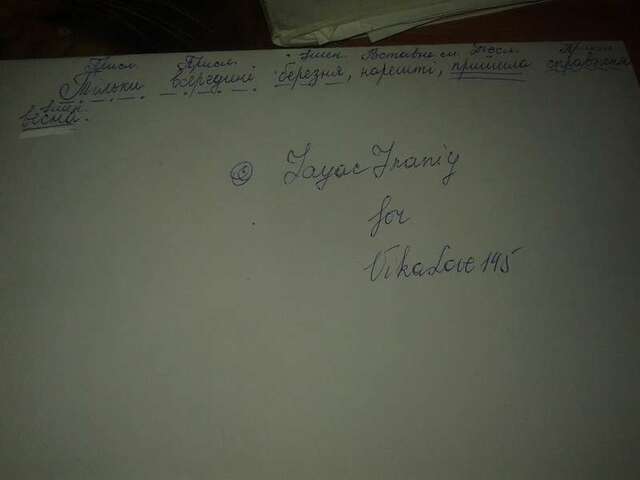 Присл. Присл. Імен. Вставне сл. Дієсл. Прикм.
Тільки всередині березня, нарешті, прийшла справжня
Імен.
весна.
© Zayac Znaniy
for
VikaLove145